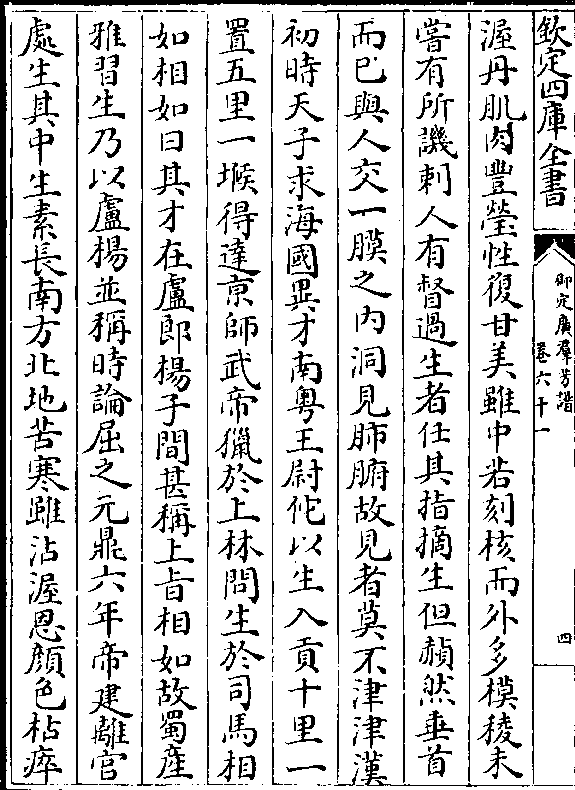 欽定四庫全書
御定廣羣芳譜
卷六十一
四
渥丹肌肉豐瑩性復甘美雖中若刻核而外多模稜未
嘗有所譏刺人有督過生者任其指摘生但赬然垂首
而已與人交一膜之內洞見肺腑故見者莫不津津漢
初時天子求海國異才南粤王尉佗以生入貢十里一
置五里一堠得達京師武帝獵於上林問生於司馬相
如相如曰其才在盧郎楊子間甚稱上旨相如故蜀產
雅習生乃以盧楊並稱時論屈之元鼎六年帝建離宫
處生其中生素長南方北地苦寒雖沾渥恩顔色枯瘁